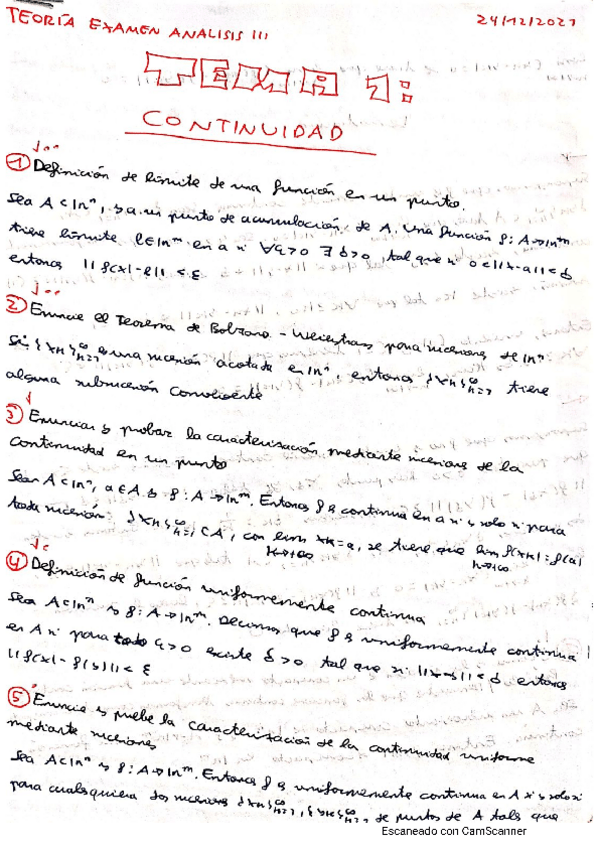 TEORÍA EXAMEN ANALISIS III 24/12/2021
TEMA 1:
CONTINUIDAD
① Definición de límite de una función en un punto.
Sea A⊂ℝⁿ, y a un punto de acumulación de A. Una función f: A→ℝᵐ
tiene límite l∈ℝᵐ en a si ∀ε>0 ∃δ>0, tal que si 0<||x-a||<δ
entonces ||f(x)-l||<ε
② Enuncie el Teorema de Bolzano-Weierstrass para sucesiones de ℝⁿ
Si {xₖ}∞ₖ₌₁ es una sucesión acotada en ℝⁿ, entonces {xₖ}∞ₖ₌₁ tiene
alguna subsucesión convergente
③ Enunciar y probar la caracterización mediante sucesiones de la
continuidad en un punto
Sean A⊂ℝⁿ, a∈A y f: A→ℝᵐ. Entonces f es continua en a si y solo si para
toda sucesión {xₖ}∞ₖ₌₁⊂A, con lim xₖ=a, se tiene que lim f(xₖ)=f(a)
k→+∞ k→+∞
④ Definición de función uniformemente continua
Sea A⊂ℝⁿ y f: A→ℝᵐ. Decimos que f es uniformemente continua
en A si para todo ε>0 existe δ>0 tal que si ||x-y||<δ entonces
||f(x)-f(y)||<ε
⑤ Enuncie y pruebe la caracterización de la continuidad uniforme
mediante sucesiones
Sea A⊂ℝⁿ y f: A→ℝᵐ. Entonces f es uniformemente continua en A si y solo si
para cualesquiera dos sucesiones {xₖ}∞ₖ₌₁, {yₖ}∞ₖ₌₁ de puntos de A tales que
Escaneado con CamScanner